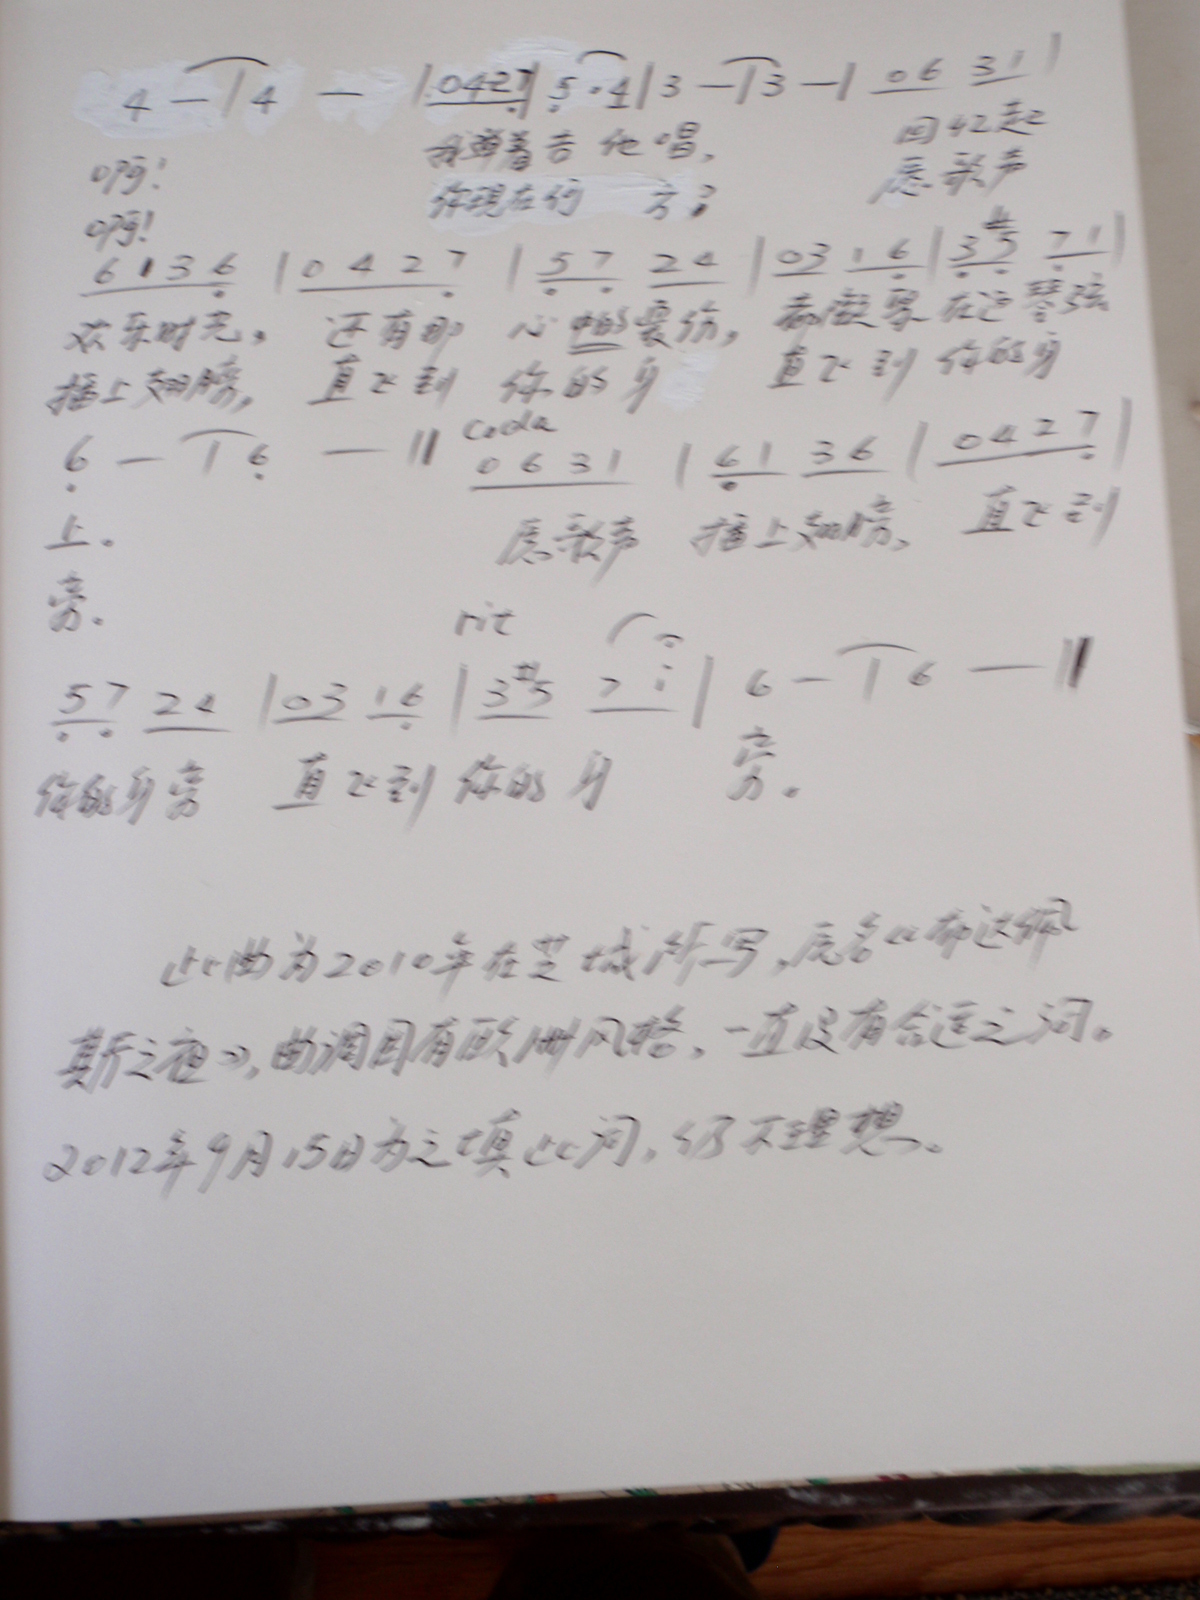 4 — | 4 — | 0427 | 5 · 4 | 3 — | 3 — | 06 31 |
啊! 我弹着吉他唱, 回忆起
啊! 你现在何方? 愿歌声
6136 | 0427 | 57 24 | 03 16 | 3#5 71 |
欢乐时光, 还有那 心中的忧伤, 都凝聚在这琴弦
插上翅膀, 直飞到 你的身 直飞到 你的身
6 — | 6 — || coda 0631 | 61 36 | 0427 |
上. 愿歌声 插上翅膀, 直飞到
旁.
rit
57 24 | 03 16 | 3#5 7i | 6 — | 6 — ||
你的身旁 直飞到 你的身 旁.
此曲为2010年在芝城所写,原名《布达佩
斯之夜》,曲调具有欧洲风格,一直没有合适之词.
2012年9月15日为之填此词,仍不理想.